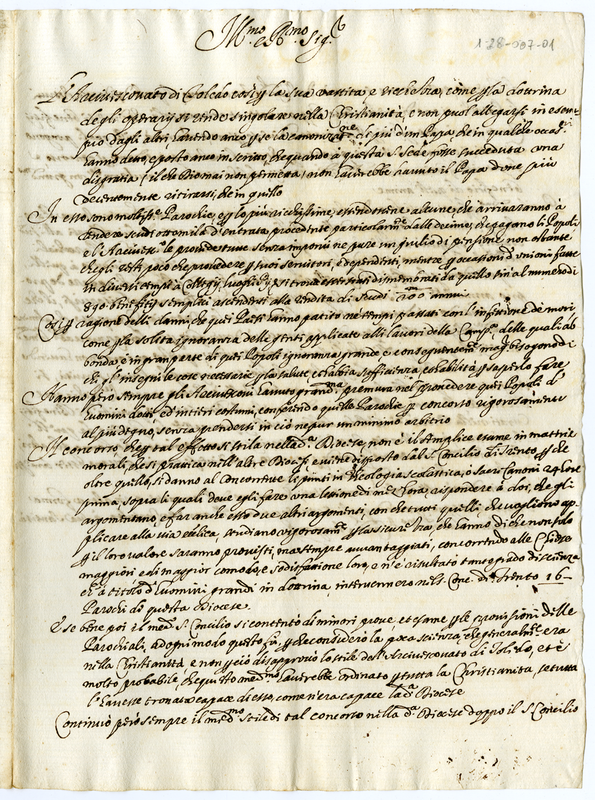 Ill.mo e R.mo Sig.r
1-28-007-01
L'Arcivescovato di Toledo così p la sua vastità e ricchezza, come p la dottrina
degli ottimi si rende singolare nella Christianità, e non puol allegarsi in esem
pio dagli altri havendo anco p se la canonizat.ne di più d'un Papa che in qualche occas.
hanno detto, e posto anco in scritto, che quando à questa S. Sede fosse succeduta una
disgratia (il che Dio mai non permetta) non haverebbe havuto il Papa dove più
decentemente ritirarsi, che in quello
In esso sono molte Parochie, e p lo più ricchissime, essendovene alcune, che arrivaranno à
rendere scudi ottomila d'entrata, procedente particolarm.te dalle decime, che pagano li Popoli
e l'Arcivesc. le provede tutte senza imponervi ne pure un giulio di pensione, non ostante
che gli resti poco che provedere p suoi servitori, e dependenti, mentre p occasioni d'unioni fatte
in diversi tempi à Collegij, luoghi pij si trova
890 benefitij semplici ascendenti alla rendita di scudi annui
Così p cagione delli danni, che quei Paesi hanno patito ne tempi passati con l'infettione de mori
come p la solita ignoranza delle genti applicate alli lavori della Camp. delle quali ab
bonda, è in gran parte di quei Popoli ignoranza grande, e conseguentem. magg. bisogno di
chi gl'insegni le cose necessarie p la salute, et habbia sufficienza, et habilità p saperlo fare
Hanno però sempre gli Arcivescovi havuto grand.ma premura nel provedere quei Popoli d'
huomini dotti, ed intieri costumi, conferendo quelle Parochie p concorso rigorosamente
al più degno, senza prendersi in ciò ne pur un minimo arbitrio
Il concorso che p tal effetto si stila nella d.a Diocese, non è il semplice esame in matterie
morali, che si pratica nell'altre Diocesi, e viene disposto dal S. Concilio di Trento, p che
oltre questo, si danno al Concorrente li punti in Theologia scolastica, ò Sacri Canoni 24 hore
prima, sopra li quali deve egli fare una lettione di mezz'hora, rispondere à doi, che gli
argomentano, e far anche esso due altri argomenti, con che tutti quelli, che vogliono ap
plicare alla via ecclica, studiano vigorosam.te p la sicurezza che hanno di che non solo
p il loro valore saranno provisti, ma sempre avvantaggiati, concorrendo alle Chiese
maggiori e di maggior comodo, e sodisfazione loro, e n'è risultato tanto grado di scienza
ch'à titolo d'huomini grandi in dottrina, intervennero nel S. Conc. di Trento 16
Parochi di questa Diocese.
E se bene poi il med. S. Concilio si contentò di minori prove, et esame p le provisioni delle
Parochiali, ad ogni modo questo fù, p che considerò la poca scienza, che generalm.te era
nella Christianità, e non p ciò disapprovò lo stile dell'Arcivescovato di Toledo, et è
molto probabile, che questo med.mo haverebbe ordinato p tutta la Christianità, se tutta
l'havesse trovata capace di esso, come n'era capace la d.a Diocese
Continuò però sempre il med.mo stile di tal concorso nella d.a Diocese doppo il S. Concilio